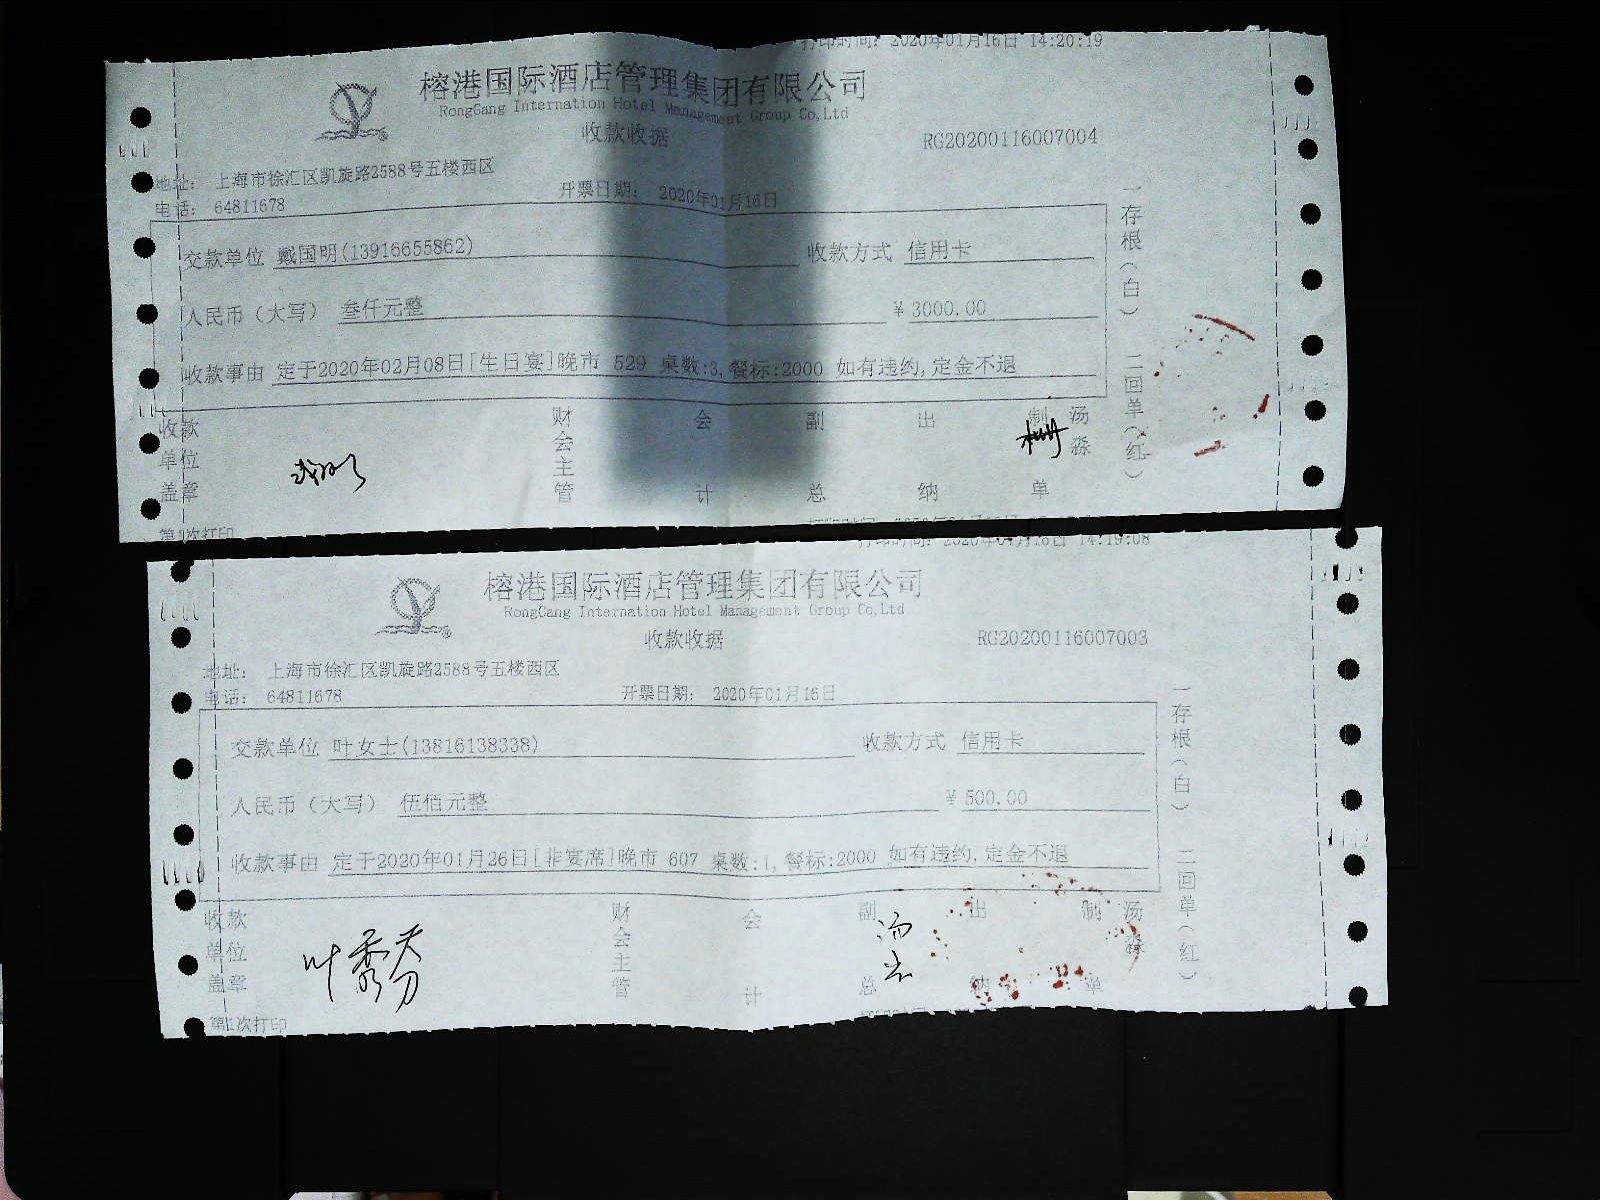 打印时间: 2020年01月16日 14:20:19
榕港国际酒店管理集团有限公司
RongGang Internation Hotel Management Group Co,Ltd
收款收据
RG20200116007004
地址: 上海市徐汇区凯旋路2588号五楼西区
电话: 64811678
开票日期: 2020年01月16日
交款单位 戴国明(13916655862) 收款方式 信用卡
人民币（大写） 叁仟元整 ¥ 3000.00
收款事由 定于2020年02月08日[生日宴]晚市 529 桌数:3,餐标:2000 如有违约,定金不退
一存根(白) 二回单(红)
收款单位盖章 财会主管 会计 副总 出纳 制单 汤淼
第1次打印
打印时间: 2020年01月16日 14:19:08
榕港国际酒店管理集团有限公司
RongGang Internation Hotel Management Group Co,Ltd
收款收据
RG20200116007003
地址: 上海市徐汇区凯旋路2588号五楼西区
电话: 64811678
开票日期: 2020年01月16日
交款单位 叶女士(13816138338) 收款方式 信用卡
人民币（大写） 伍佰元整 ¥ 500.00
收款事由 定于2020年01月26日[非宴席]晚市 607 桌数:1,餐标:2000 如有违约,定金不退
一存根(白) 二回单(红)
收款单位盖章 叶秀芬 财会主管 会计 副总 出纳 制单 汤淼
第1次打印